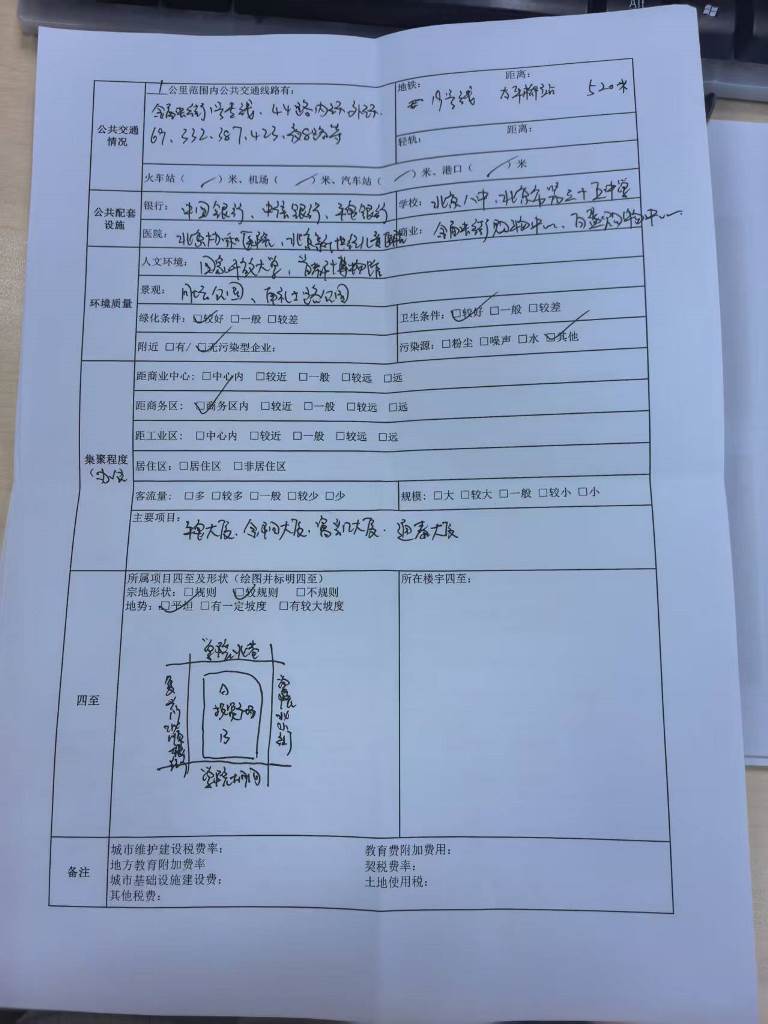 1公里范围内公共交通线路有:
金融街1号专线、44路内环外环、
67、332、387、423、夜8路等
公共交通
情况
地铁: 距离:
19号线 太平桥站 520米
轻轨: 距离:
火车站( / )米、机场( / )米、汽车站( / )米、港口( / )米
公共配套
设施
银行: 中国银行、中信银行、平安银行
学校: 北京八中、北京市第三十五中学
医院: 北京协和医院、北京新世纪儿童医院
商业: 金融街购物中心、百盛购物中心
环境质量
人文环境: 国家开放大学、首都博物馆
景观: 月坛公园、南礼士路公园
绿化条件: ☑较好 □一般 □较差
卫生条件: ☑较好 □一般 □较差
附近 □有/ ☑无污染型企业:
污染源: □粉尘 □噪声 □水 ☑其他
集聚程度
(办公
距商业中心: □中心内 □较近 □一般 □较远 □远
距商务区: ☑商务区内 □较近 □一般 □较远 □远
距工业区: □中心内 □较近 □一般 □较远 □远
居住区: □居住区 □非居住区
客流量: □多 □较多 □一般 □较少 □少
规模: □大 □较大 □一般 □较小 □小
主要项目:
平安大厦、金阳大厦、富凯大厦、通泰大厦
四至
所属项目四至及形状（绘图并标明四至）
宗地形状: □规则 ☑较规则 □不规则
地势: ☑平坦 □有一定坡度 □有较大坡度
所在楼宇四至:
学院北巷
复兴门北顺城街
投资广场
学院胡同
备注
城市维护建设税费率: 教育费附加费用:
地方教育附加费率 契税费率:
城市基础设施建设费: 土地使用税:
其他税费: